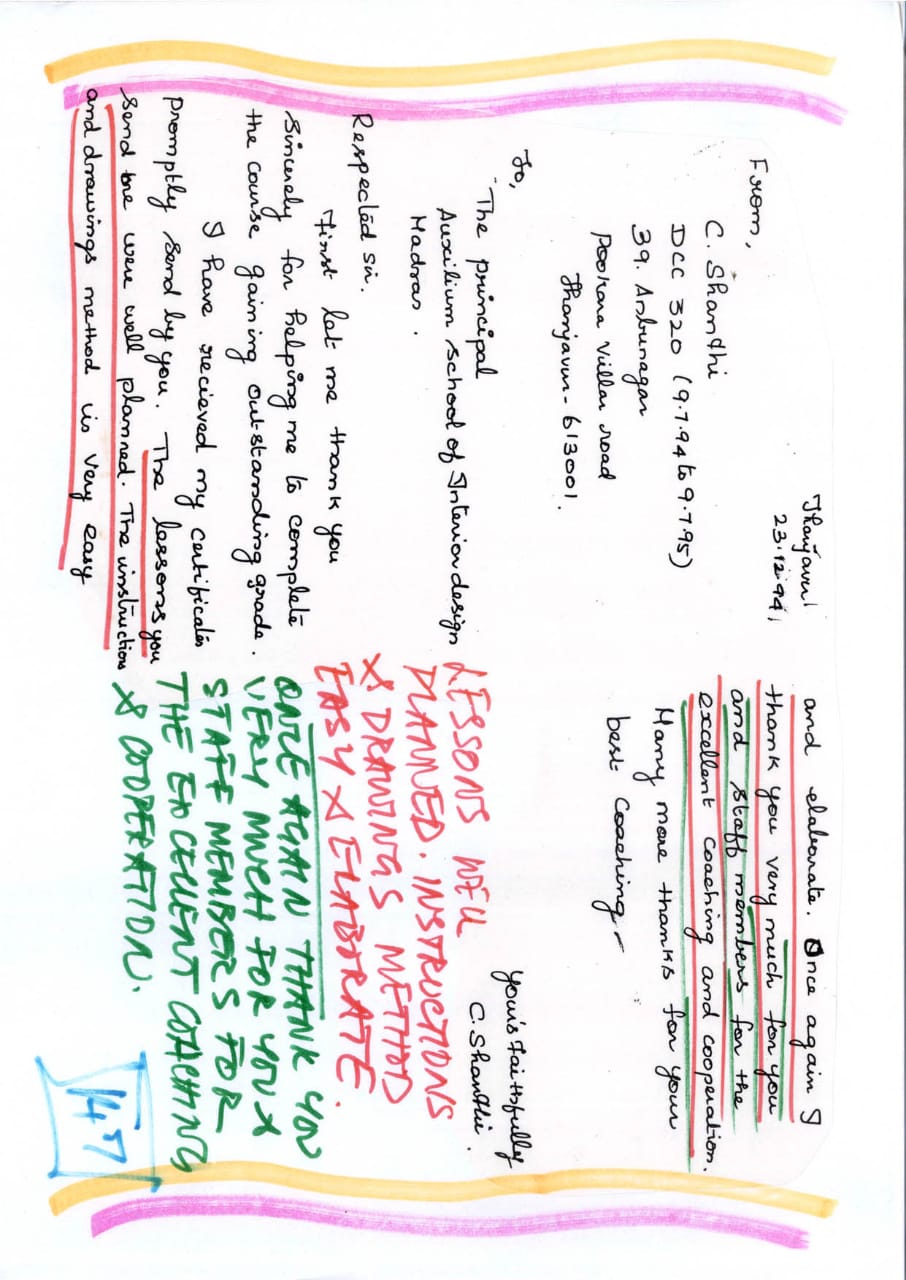 Thanjavur
23.12.94,
From,
C. Shanthi
DCC 320 (9.7.94 to 9.7.95)
39. Anbunagar
Pookara villar road
Thanjavur - 613001.
To,
The principal
Auxilium School of Interior design
Madras.
Respected sir.
First let me thank you
sincerely for helping me to complete
the course gaining outstanding grade.
I have recieved my certificates
promptly send by you. The lessons you
send me were well planned. The instruction
and drawings method is very easy
and elaborate. Once again I
thank you very much for you
and staff members for the
excellent coaching and cooperation.
Many more thanks for your
best coaching -
yours faithfully
C. Shanthi.
LESSONS WELL
PLANNED. INSTRUCTIONS
& DRAWINGS METHOD
EASY & ELABORATE.
ONCE AGAIN THANK YOU
VERY MUCH FOR YOU &
STAFF MEMBERS FOR
THE EXCELLENT COACHING
& COOPERATION.